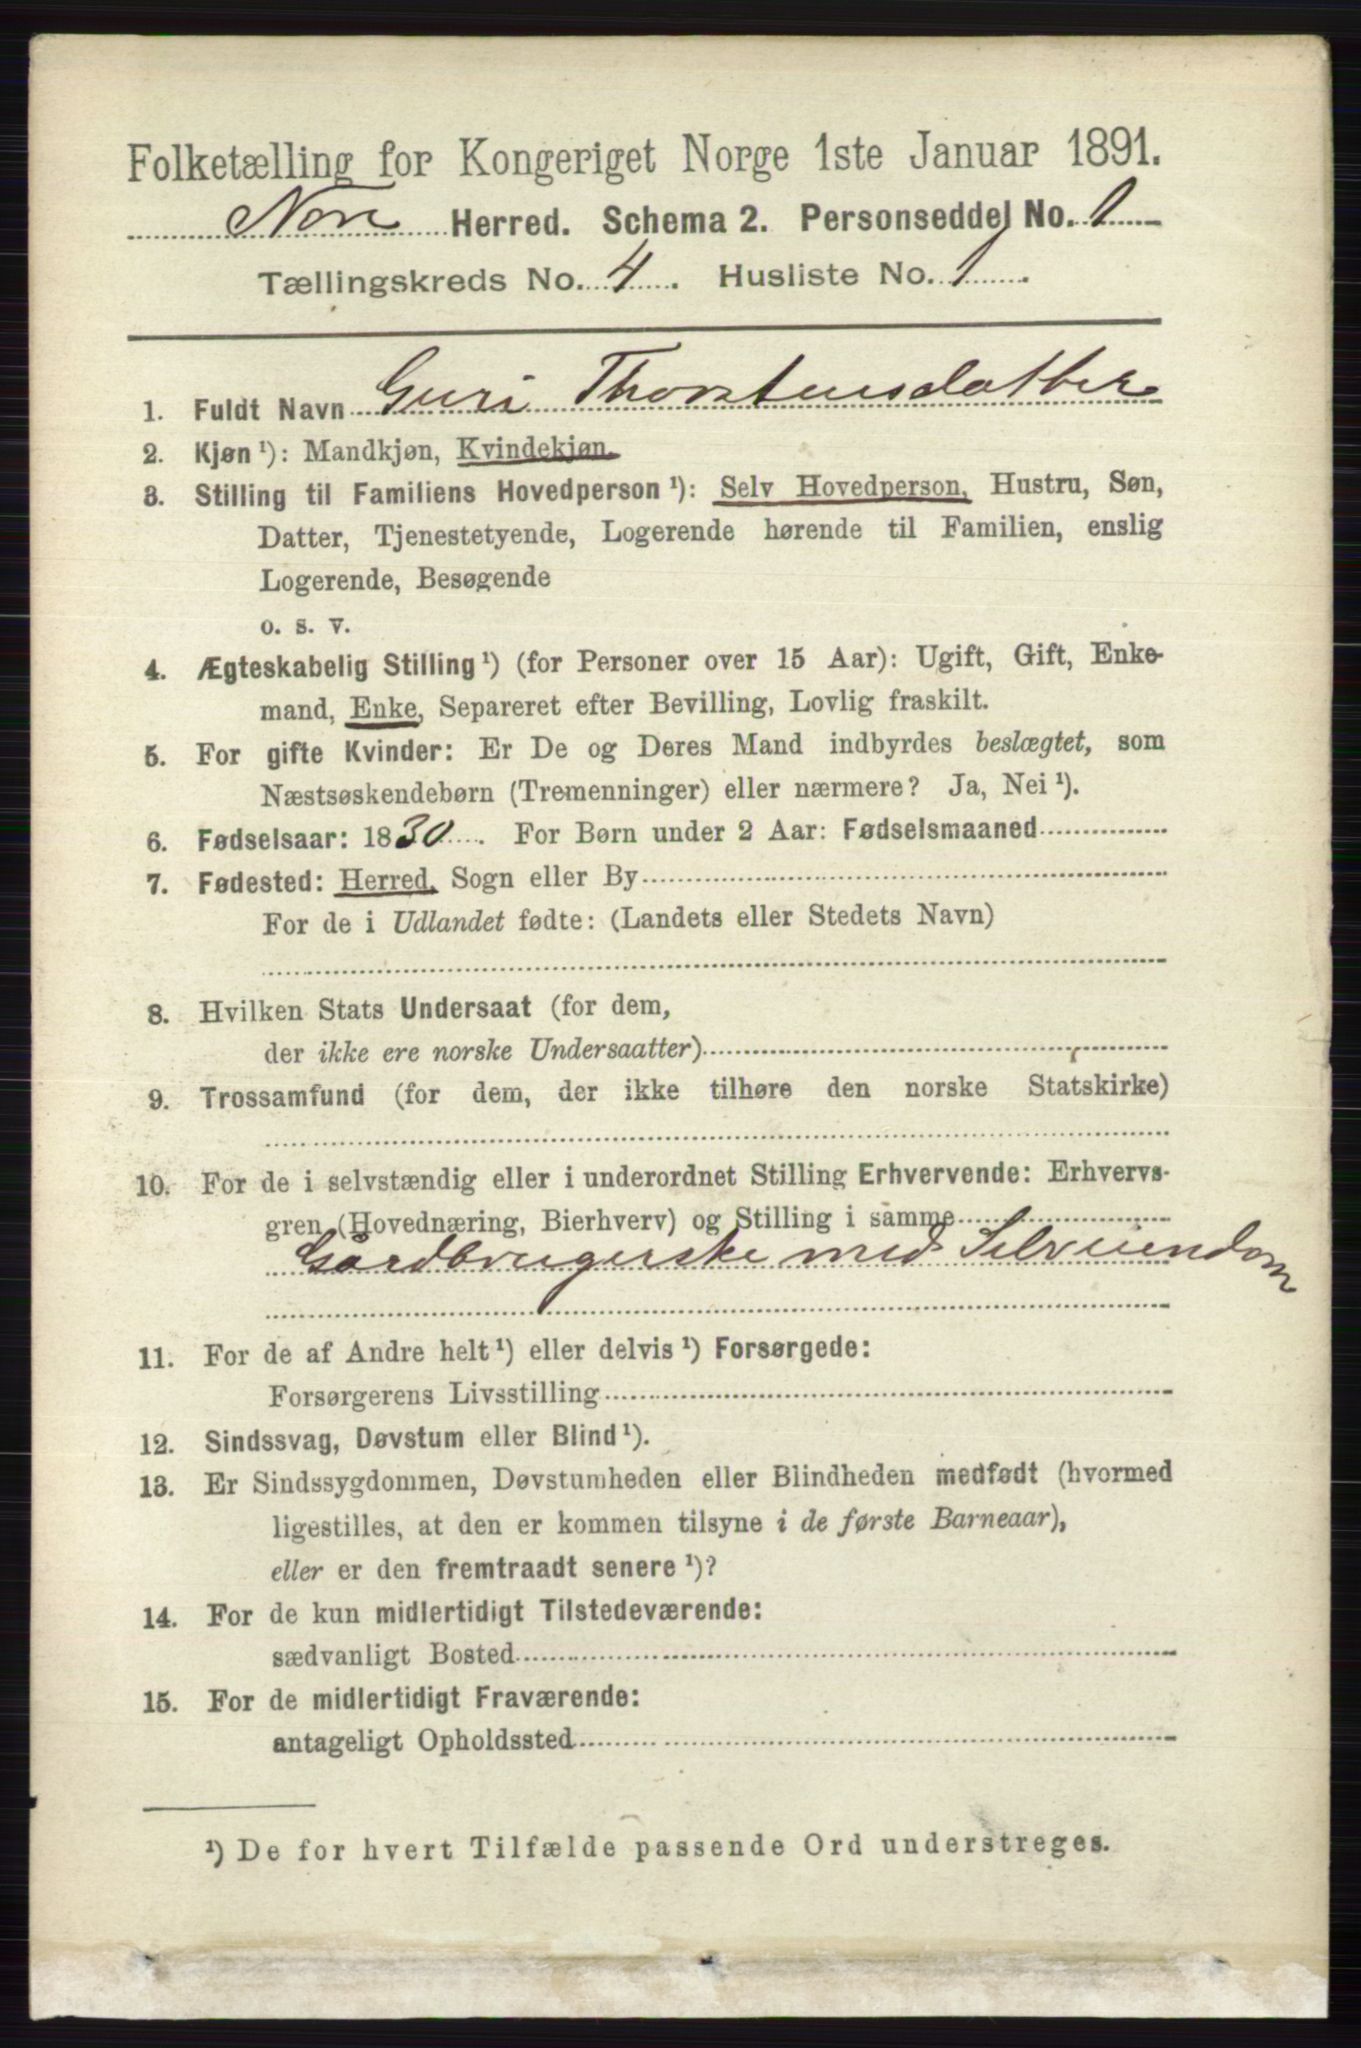 Folketælling for Kongeriget Norge 1ste Januar 1891.
Nore Herred. Schema 2. Personseddel No. 1
Tællingskreds No. 4. Husliste No. 1.
1. Fuldt Navn Guri Thorstensdatter
2. Kjøn ¹): Mandkjøn, Kvindekjøn.
3. Stilling til Familiens Hovedperson ¹): Selv Hovedperson, Hustru, Søn,
Datter, Tjenestetyende, Logerende hørende til Familien, enslig
Logerende, Besøgende
o. s. v.
4. Ægteskabelig Stilling ¹) (for Personer over 15 Aar): Ugift, Gift, Enke-
mand, Enke, Separeret efter Bevilling, Lovlig fraskilt.
5. For gifte Kvinder: Er De og Deres Mand indbyrdes beslægtet, som
Næstsøskendebørn (Tremenninger) eller nærmere? Ja, Nei ¹).
6. Fødselsaar: 1830. For Børn under 2 Aar: Fødselsmaaned
7. Fødested: Herred, Sogn eller By
For de i Udlandet fødte: (Landets eller Stedets Navn)
8. Hvilken Stats Undersaat (for dem,
der ikke ere norske Undersaatter)
9. Trossamfund (for dem, der ikke tilhøre den norske Statskirke)
10. For de i selvstændig eller i underordnet Stilling Erhvervende: Erhvervs-
gren (Hovednæring, Bierhverv) og Stilling i samme
Gårdbrugerske med Selveiendom
11. For de af Andre helt ¹) eller delvis ¹) Forsørgede:
Forsørgerens Livsstilling
12. Sindssvag, Døvstum eller Blind ¹).
13. Er Sindssygdommen, Døvstumheden eller Blindheden medfødt (hvormed
ligestilles, at den er kommen tilsyne i de første Barneaar),
eller er den fremtraadt senere ¹)?
14. For de kun midlertidigt Tilstedeværende:
sædvanligt Bosted
15. For de midlertidigt Fraværende:
antageligt Opholdssted
¹) De for hvert Tilfælde passende Ord understreges.